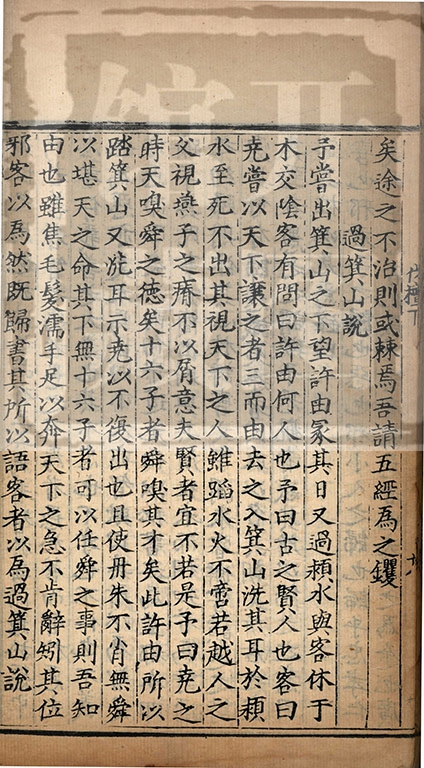 矣途之不治則或棘焉吾請五經為之钁
過箕山說
予嘗出箕山之下望許由冢其日又過潁水與客休于
木交陰客有問曰許由何人也予曰古之賢人也客曰
堯嘗以天下讓之者三而由去之入箕山洗其耳於潁
水至死不出其視天下之人雖蹈水火不啻若越人之
父視燕子之瘠不以屑意夫賢者宜不若是予曰堯之
時天嗅舜之德矣十六子者舜嗅其才矣此許由所以
踏箕山又洗耳示堯以不復出也且使丹朱不肖無舜
以堪天之命其下無十六子者可以任舜之事則吾知
由也雖焦毛髮濡手足以奔天下之急不肯辭矧其位
邪客以為然既歸書其所以語客者以為過箕山說